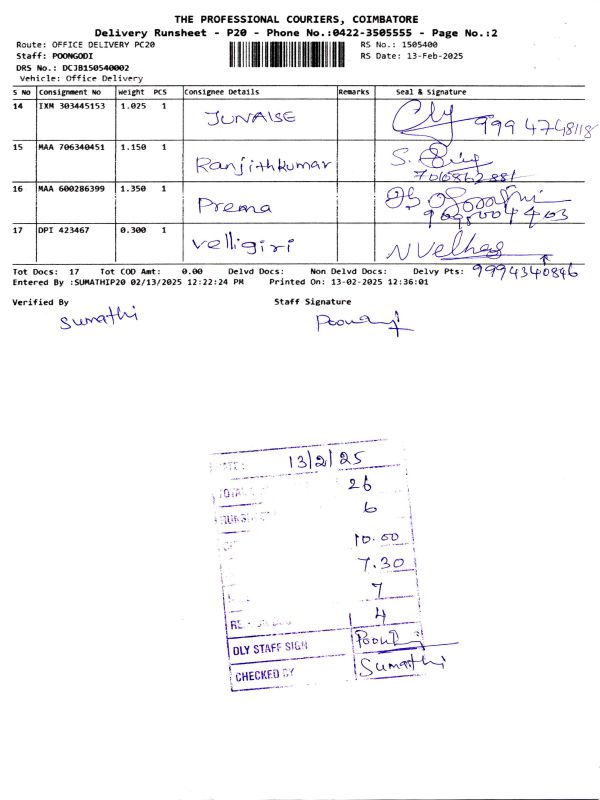 THE PROFESSIONAL COURIERS, COIMBATORE
Delivery Runsheet - P20 - Phone No.:0422-3505555 - Page No.:2
Route: OFFICE DELIVERY PC20 RS No.: 1505400
Staff: POONGODI RS Date: 13-Feb-2025
DRS No.: DCJB150540002
Vehicle: Office Delivery
S No Consignment No Weight PCS Consignee Details Remarks Seal & Signature
14 IXM 303445153 1.025 1 JUNAISE 9994748118
15 MAA 706340451 1.150 1 Ranjithkumar S.
7010862881
16 MAA 600286399 1.350 1 Prema
17 DPI 423467 0.300 1 Velligiri
Tot Docs: 17 Tot COD Amt: 0.00 Delvd Docs: Non Delvd Docs: Delvy Pts: 9994340846
Entered By :SUMATHIP20 02/13/2025 12:22:24 PM Printed On: 13-02-2025 12:36:01
Verified By Staff Signature
Sumathi
13/2/25
26
6
10.00
7.30
7
4
DLY STAFF SIGN
CHECKED BY Sumathi